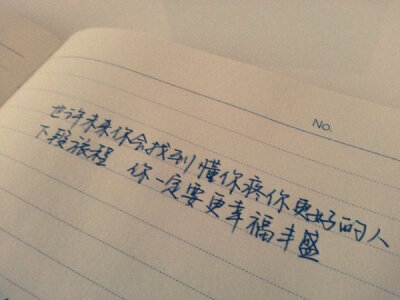 No.
也许未来你会找到懂你疼你更好的人
下段旅程 你一定要更幸福丰盛